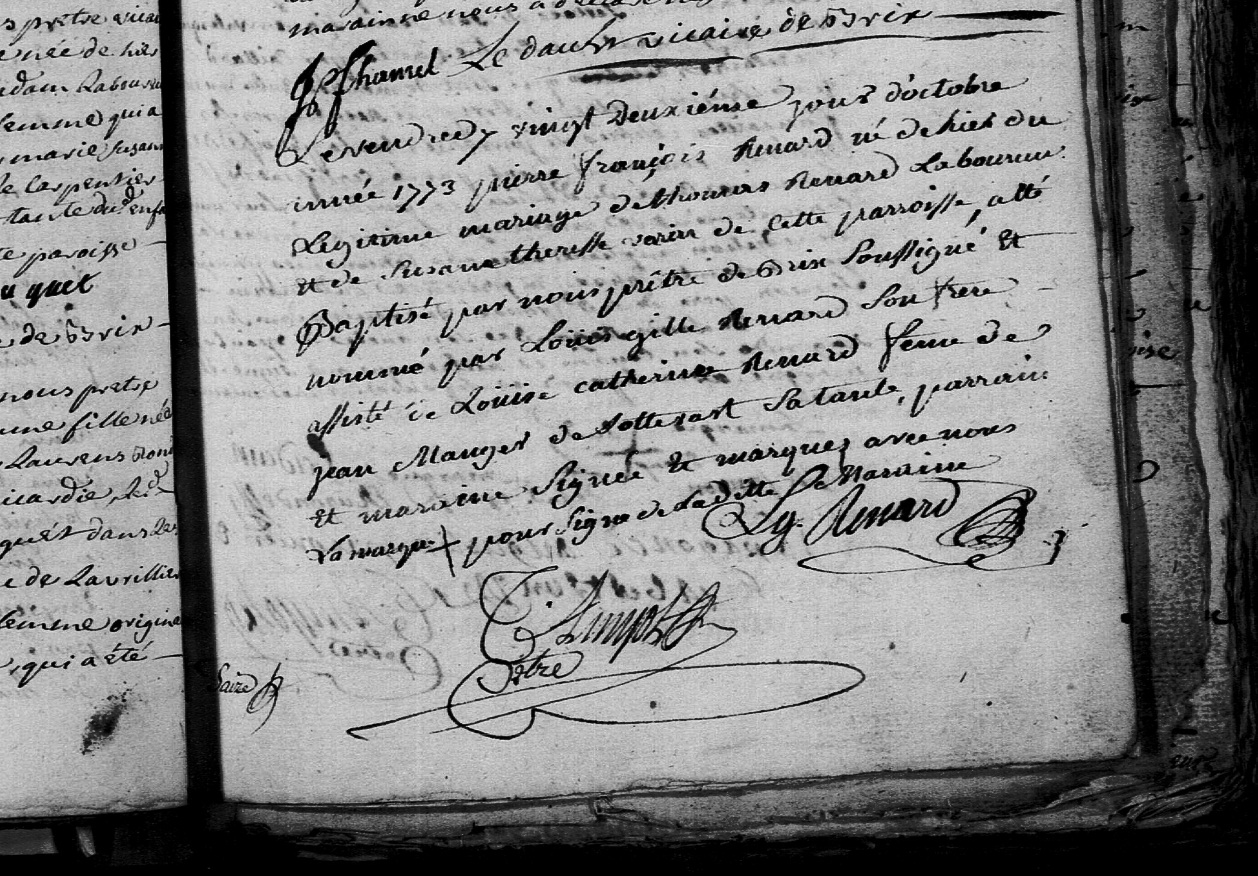 s pretre vicai
e née de hier
femme qui a
marie susann
le Carpentier
tante du d enfa
te paroisse
u quet
de Brix
nous pretre
une fille née
Laurens
icardie
quét dans les
e de Lavrillier
femme origine
qui a été
maraine nous a
hamel Le daulx vicaire de Brix
Le vendredy vingt deuxiéme jour d'octobre
année 1773 pierre françois Renard né de hier du
Legitime mariage de thomas Renard Laboureur
et de Susane theresse varin de cette parroisse, atté
Baptisé par nous prêtre de Brix Soussigné Et
nommé par Loüis gille Renard Son frere
assisté de Loüise catherine Renard feme de
jean Mauger de Sottevast Sa tante, parrain
Et maraine Signée Et marquée avec nous
La marque + pour Signe de La ditte Maraine
L g. Renard
ptre